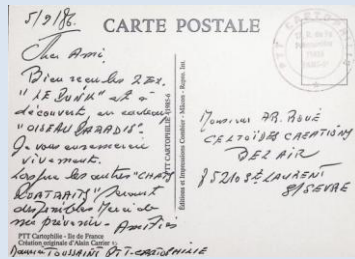 5/9/86.
CARTE POSTALE
Cher Ami.
Bien reçu les 2 Ex.
"LE PUNK" est à
découvrir, en couleur
"OISEAU PARADIS".
Je vous en remercie
vivement.
Lorsque les autres "CHATS
PORTRAITS" seront
disponibles Merci de
me prévenir. Amitiés
PTT Cartophilie - Ile de France
Création originale d'Alain Carrier
TOUSSAINT PTT-CARTOPHILIE
PTT CARTOPHILIE
Editions et Impressions Combier - Mâcon
PTT CARTOPHILIE
Monsieur AR. ROUÉ
CELTOÏDES CREATIONS
BEL AIR
85210 St LAURENT
S/SEVRE